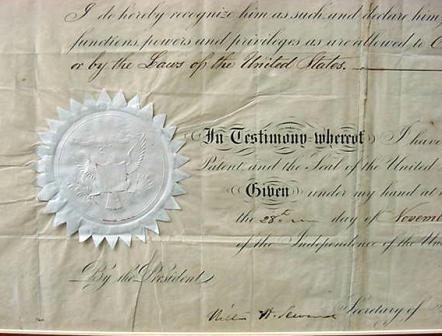 I do hereby recognize him as such, and declare him
functions, powers and privileges as are allowed to
or by the Laws of the United States.
In Testimony whereof I have
Patent, and the Seal of the United
Given under my hand at
the 28th day of Novem
of the Independence of the Un
By the President
William H. Seward Secretary of